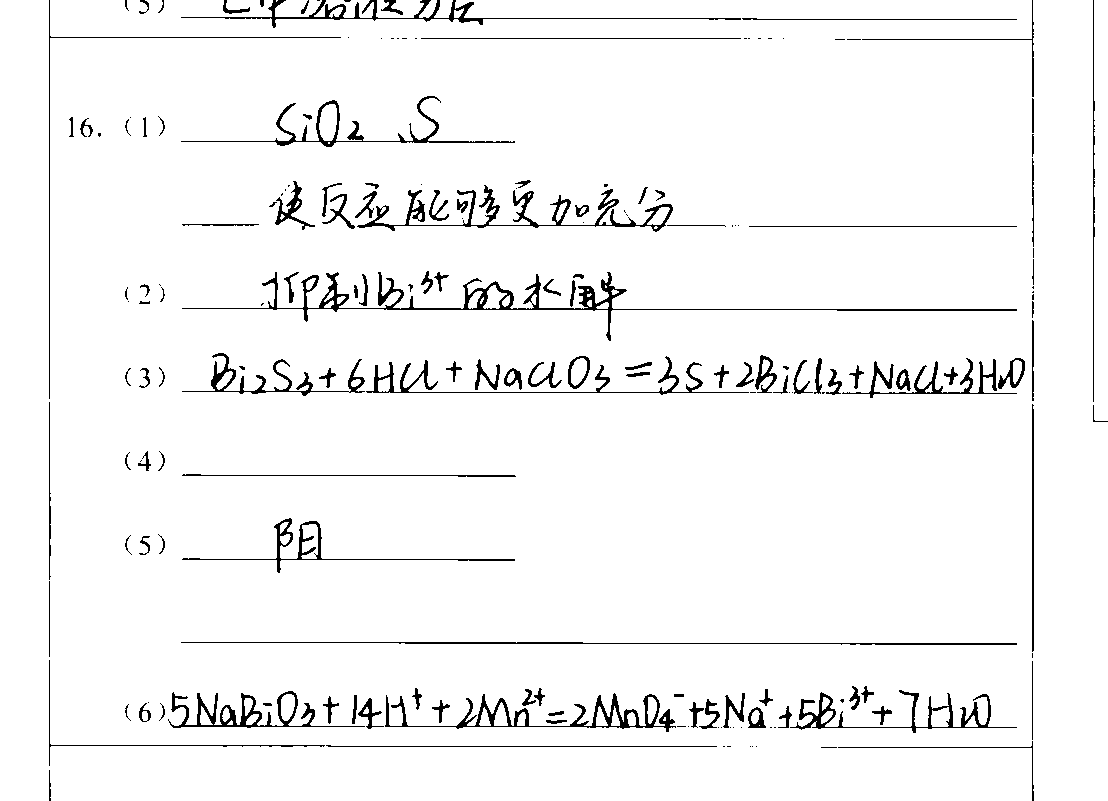 (5) 上下溶液分层
16. (1) SiO₂、S
使反应能够更加充分
(2) 抑制Bi³⁺的水解
(3) Bi₂S₃+6HCl+NaClO₃=3S+2BiCl₃+NaCl+3H₂O
(4)
(5) 阴
(6) 5NaBiO₃+14H⁺+2Mn²⁺=2MnO₄⁻+5Na⁺+5Bi³⁺+7H₂O